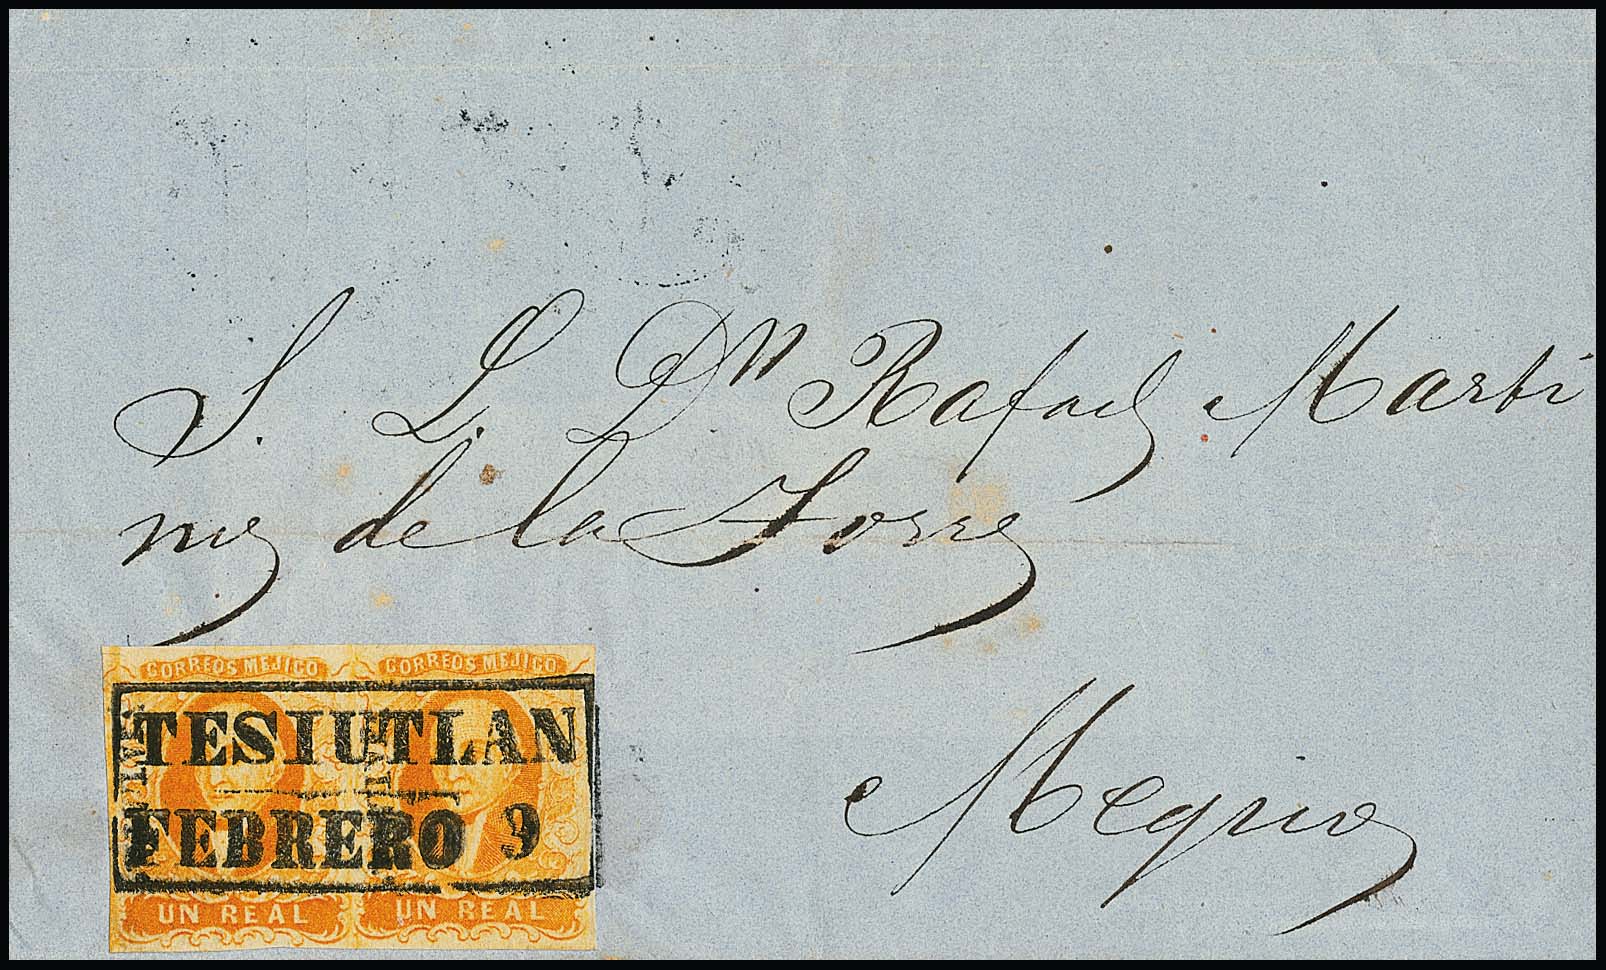 S. L. Dn Rafael Marti
nez de la Torre
Megico
CORREOS MEJICO CORREOS MEJICO
TESIUTLAN
FEBRERO 9
UN REAL UN REAL